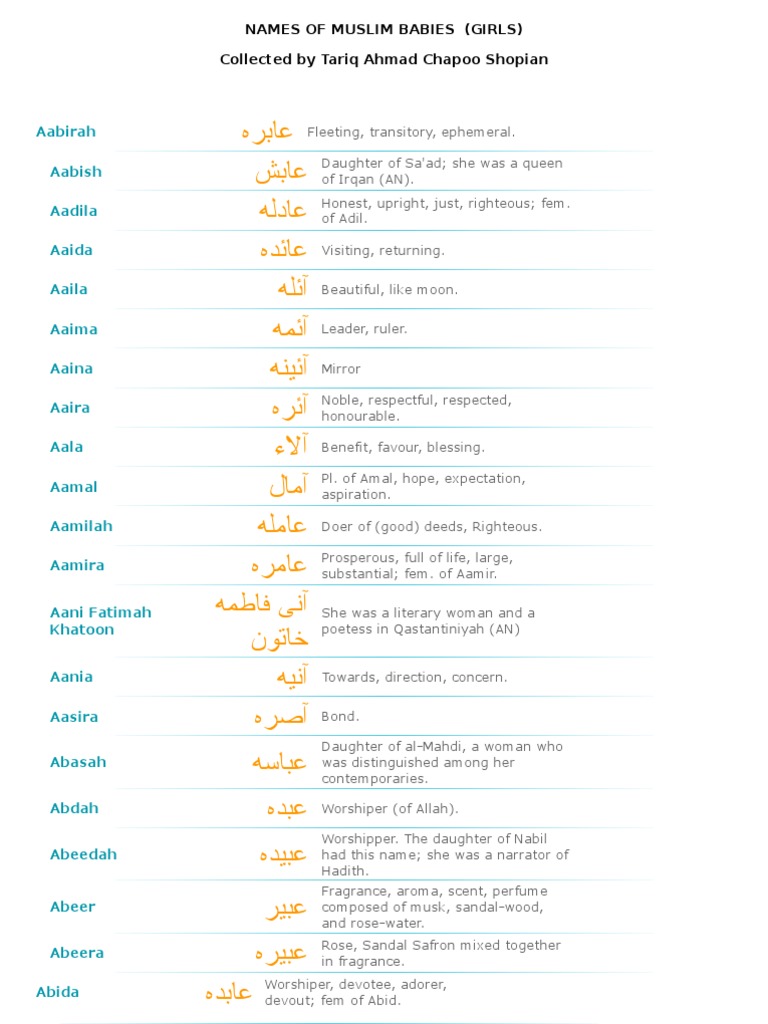 NAMES OF MUSLIM BABIES  (GIRLS)
Collected by Tariq Ahmad Chapoo Shopian
Aabirah عابرہ Fleeting, transitory, ephemeral.
Aabish عابش Daughter of Sa'ad; she was a queen
of Irqan (AN).
Aadila عادلہ Honest, upright, just, righteous; fem.
of Adil.
Aaida عائدہ Visiting, returning.
Aaila آئلہ Beautiful, like moon.
Aaima آئمہ Leader, ruler.
Aaina آئینہ Mirror
Aaira آئرہ Noble, respectful, respected,
honourable.
Aala آلاء Benefit, favour, blessing.
Aamal آمال Pl. of Amal, hope, expectation,
aspiration.
Aamilah عاملہ Doer of (good) deeds, Righteous.
Aamira عامرہ Prosperous, full of life, large,
substantial; fem. of Aamir.
Aani Fatimah آنی فاطمہ She was a literary woman and a
Khatoon خاتون poetess in Qastantiniyah (AN)
Aania آنیہ Towards, direction, concern.
Aasira آصرہ Bond.
Abasah عباسہ Daughter of al-Mahdi, a woman who
was distinguished among her
contemporaries.
Abdah عبدہ Worshiper (of Allah).
Abeedah عبیدہ Worshipper. The daughter of Nabil
had this name; she was a narrator of
Hadith.
Abeer عبیر Fragrance, aroma, scent, perfume
composed of musk, sandal-wood,
and rose-water.
Abeera عبیرہ Rose, Sandal Safron mixed together
in fragrance.
Abida عابدہ Worshiper, devotee, adorer,
devout; fem of Abid.